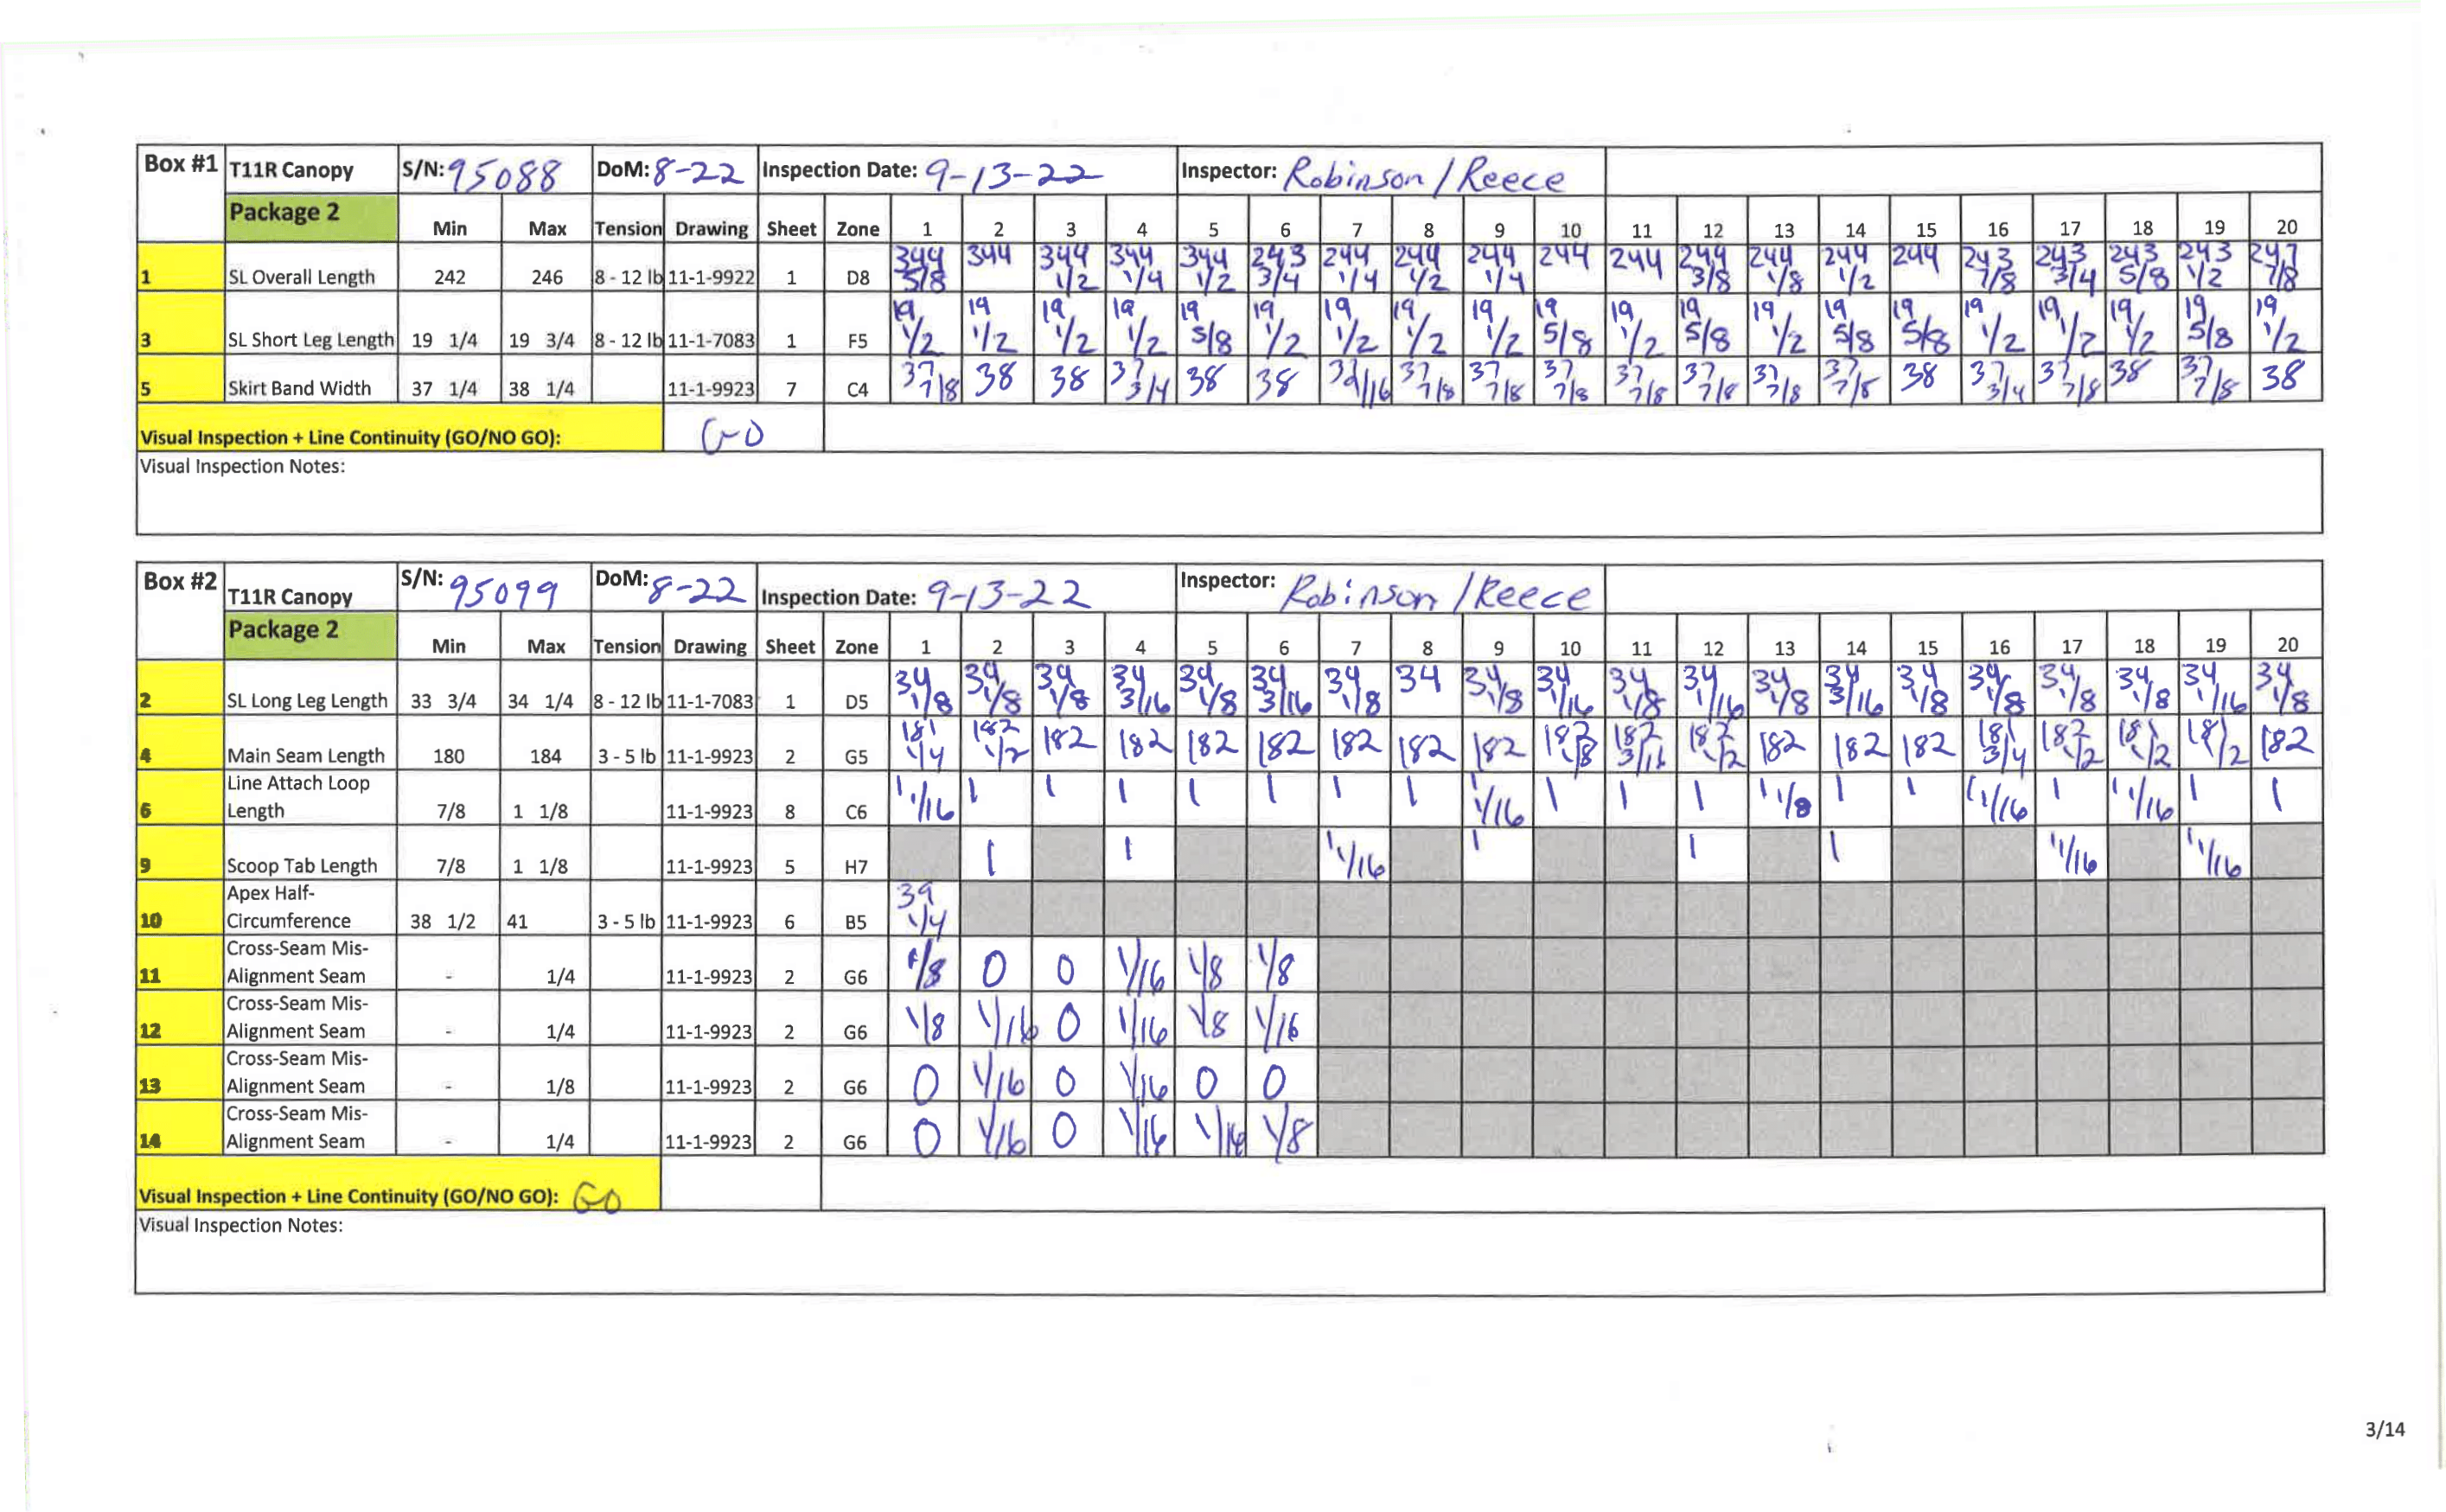 Box #1 T11R Canopy S/N: 95088 DoM: 8-22 Inspection Date: 9-13-22 Inspector: Robinson / Reece
Package 2 Min Max Tension Drawing Sheet Zone 1 2 3 4 5 6 7 8 9 10 11 12 13 14 15 16 17 18 19 20
1 SL Overall Length 242 246 8 - 12 lb 11-1-9922 1 D8 344 5/8 344 344 1/2 344 1/4 344 1/2 243 3/4 244 1/4 244 1/2 244 1/4 244 244 244 3/8 244 1/8 244 1/2 244 243 7/8 243 3/4 243 5/8 243 1/2 247 7/8
3 SL Short Leg Length 19 1/4 19 3/4 8 - 12 lb 11-1-7083 1 F5 19 1/2 19 1/2 19 1/2 19 1/2 19 5/8 19 1/2 19 1/2 19 1/2 19 1/2 19 5/8 19 1/2 19 5/8 19 1/2 19 5/8 19 5/8 19 1/2 19 1/2 19 1/2 19 5/8 19 1/2
5 Skirt Band Width 37 1/4 38 1/4 11-1-9923 7 C4 37 7/8 38 38 37 3/4 38 38 37 7/8 37 7/8 37 7/8 37 7/8 37 7/8 37 7/8 37 7/8 38 37 3/4 37 7/8 38 37 7/8 38
Visual Inspection + Line Continuity (GO/NO GO): GO
Visual Inspection Notes:
Box #2 T11R Canopy S/N: 95099 DoM: 8-22 Inspection Date: 9-13-22 Inspector: Robinson / Reece
Package 2 Min Max Tension Drawing Sheet Zone 1 2 3 4 5 6 7 8 9 10 11 12 13 14 15 16 17 18 19 20
2 SL Long Leg Length 33 3/4 34 1/4 8 - 12 lb 11-1-7083 1 D5 34 1/8 34 1/8 34 1/8 34 3/16 34 1/8 34 3/16 34 1/8 34 34 1/8 34 1/16 34 1/8 34 1/16 34 1/8 34 3/16 34 1/8 34 1/8 34 1/8 34 1/8 34 1/16 34 1/8
4 Main Seam Length 180 184 3 - 5 lb 11-1-9923 2 G5 181 1/4 182 1/2 182 182 182 182 182 182 182 182 1/8 182 3/16 182 1/2 182 182 182 181 3/4 182 1/2 181 1/2 181 1/2 182
Line Attach Loop
6 Length 7/8 1 1/8 11-1-9923 8 C6 1 1/16 1 1 1 1 1 1 1 1 1/16 1 1 1 1 1/8 1 1 1 1/16 1 1 1/16 1 1
9 Scoop Tab Length 7/8 1 1/8 11-1-9923 5 H7 1 1 1 1/16 1 1 1 1 1/16 1 1/16
Apex Half-
10 Circumference 38 1/2 41 3 - 5 lb 11-1-9923 6 B5 39 1/4
Cross-Seam Mis-
11 Alignment Seam - 1/4 11-1-9923 2 G6 1/8 0 0 1/16 1/8 1/8
Cross-Seam Mis-
12 Alignment Seam - 1/4 11-1-9923 2 G6 1/8 1/16 0 1/16 1/8 1/16
Cross-Seam Mis-
13 Alignment Seam - 1/8 11-1-9923 2 G6 0 1/16 0 1/16 0 0
Cross-Seam Mis-
14 Alignment Seam - 1/4 11-1-9923 2 G6 0 1/16 0 1/16 1/16 1/8
Visual Inspection + Line Continuity (GO/NO GO): GO
Visual Inspection Notes:
3/14